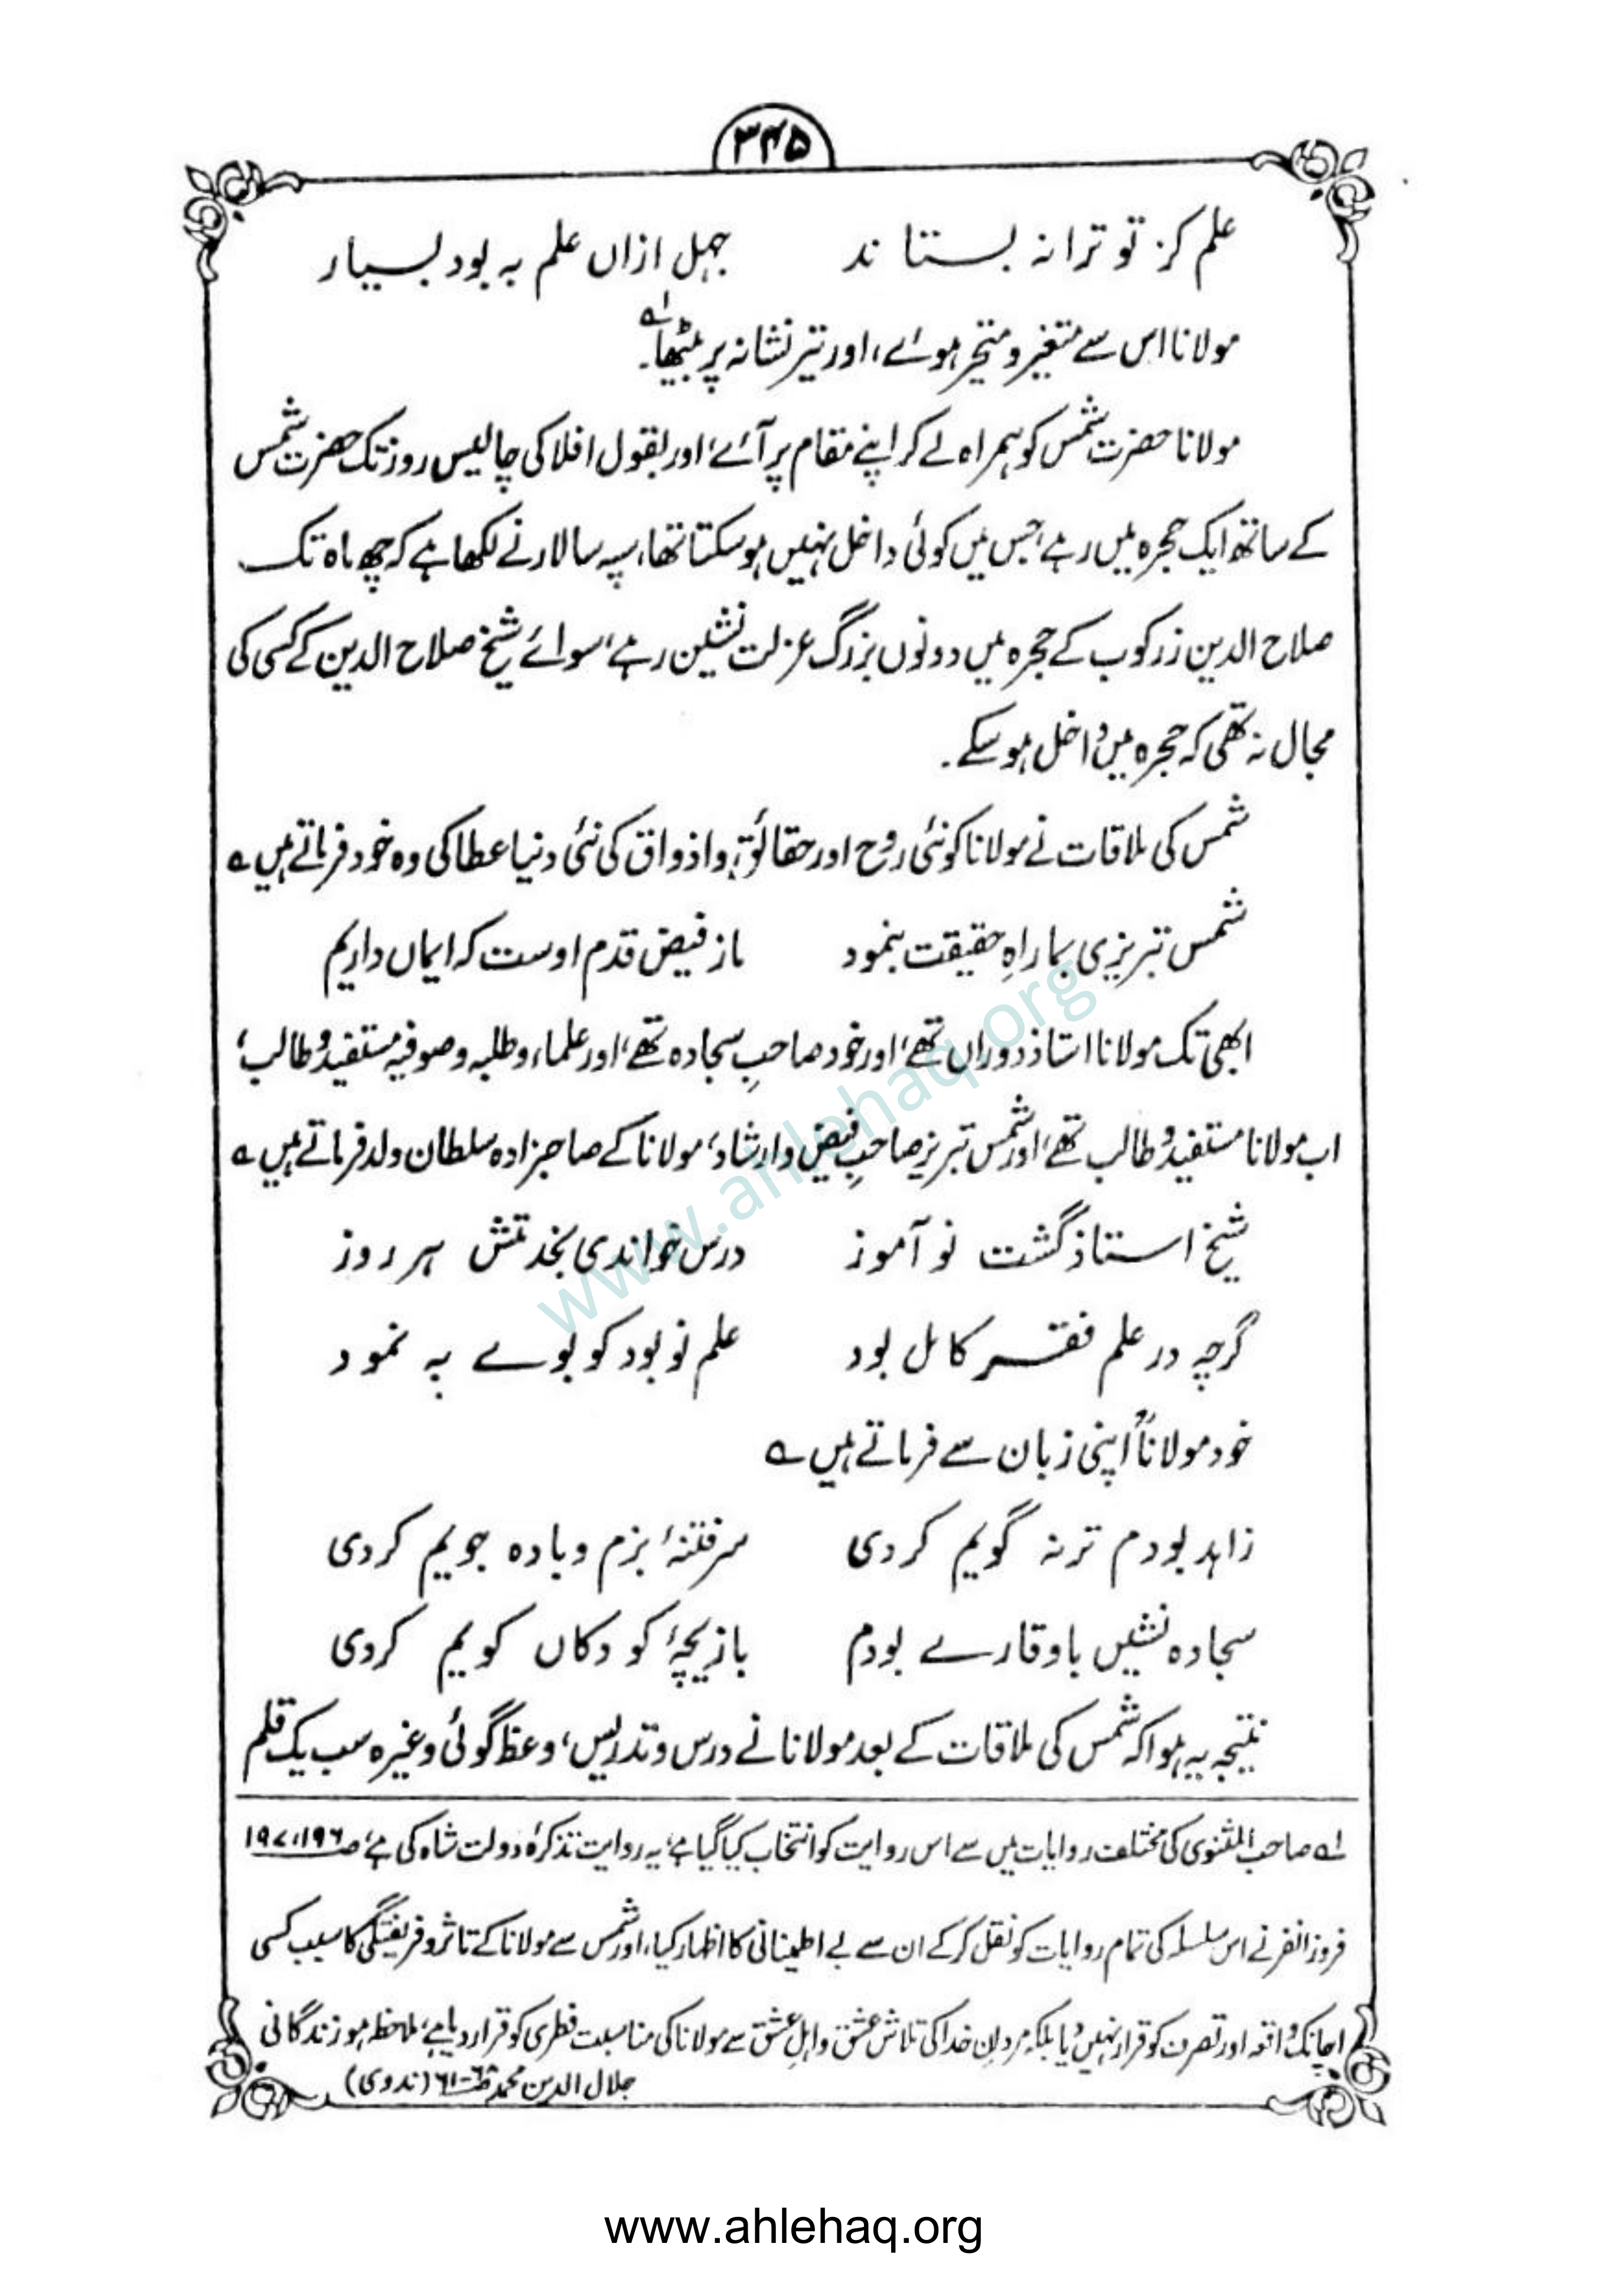 ۳۴۵
علم کز تو ترا نہ بستاند جہل ازاں علم بہ بود بسیار
مولانا اس سے متغیر و متحیر ہوئے، اور تیر نشانہ پر بیٹھا۔ لہ
مولانا حضرت شمس کو ہمراہ لے کر اپنے مقام پر آئے، اور بقول افلاکی چالیس روز تک حضرت شمس
کے ساتھ ایک حجرہ میں رہے، جس میں کوئی داخل نہیں ہو سکتا تھا، سپہ سالار نے لکھا ہے کہ چھ ماہ تک
صلاح الدین زرکوب کے حجرہ میں دونوں بزرگ عزلت نشین رہے، سوائے شیخ صلاح الدین کے کسی کی
مجال نہ تھی کہ حجرہ میں داخل ہو سکے۔
شمس کی ملاقات نے مولانا کو نئی روح اور حقائق و اذواق کی نئی دنیا عطا کی وہ خود فرماتے ہیں ؎
شمس تبریزی بما راہِ حقیقت بنمود ماز فیض قدم اوست کہ ایماں داریم
ابھی تک مولانا استاذ دوراں تھے، اور خود صاحبِ سجادہ تھے، اور علماء و طلبہ و صوفیہ مستفید و طالب،
اب مولانا مستفید و طالب تھے، اور شمس تبریز صاحبِ فیض و ارشاد، مولانا کے صاحبزادہ سلطان ولد فرماتے ہیں ؎
شیخ استاذ گشت نو آموز درس خواندی بخدمتش ہر روز
گرچہ در علم فقر کامل بود علم نو بود کو بوے بہ نمود
خود مولاناؒ اپنی زبان سے فرماتے ہیں ؎
زاہد بودم ترنہ گویم کردی سرفتنۂ بزم و بادہ جویم کردی
سجادہ نشیں باوقارے بودم بازیچۂ کودکاں کویم کردی
نتیجہ یہ ہوا کہ شمس کی ملاقات کے بعد مولانا نے درس و تدریس، وعظ گوئی وغیرہ سب یک قلم
لہ صاحب المثنوی کی مختلف روایات میں سے اس روایت کو انتخاب کیا گیا ہے، یہ روایت تذکرۂ دولت شاہ کی ہے، ص ۱۹۶، ۱۹۷
فروزانفر نے اس سلسلہ کی تمام روایات کو نقل کر کے ان سے بے اطمینانی کا اظہار کیا، اور شمس سے مولانا کے تاثر و فریفتگی کا سبب کسی
اچانک واقعہ اور تصرف کو قرار نہیں دیا بلکہ مردانِ خدا کی تلاش عشق و اہلِ عشق سے مولانا کی مناسبت فطری کو قرار دیا ہے، ملاحظہ ہو زندگانی
جلال الدین محمد ص (ندوی)
www.ahlehaq.org
www.ahlehaq.org